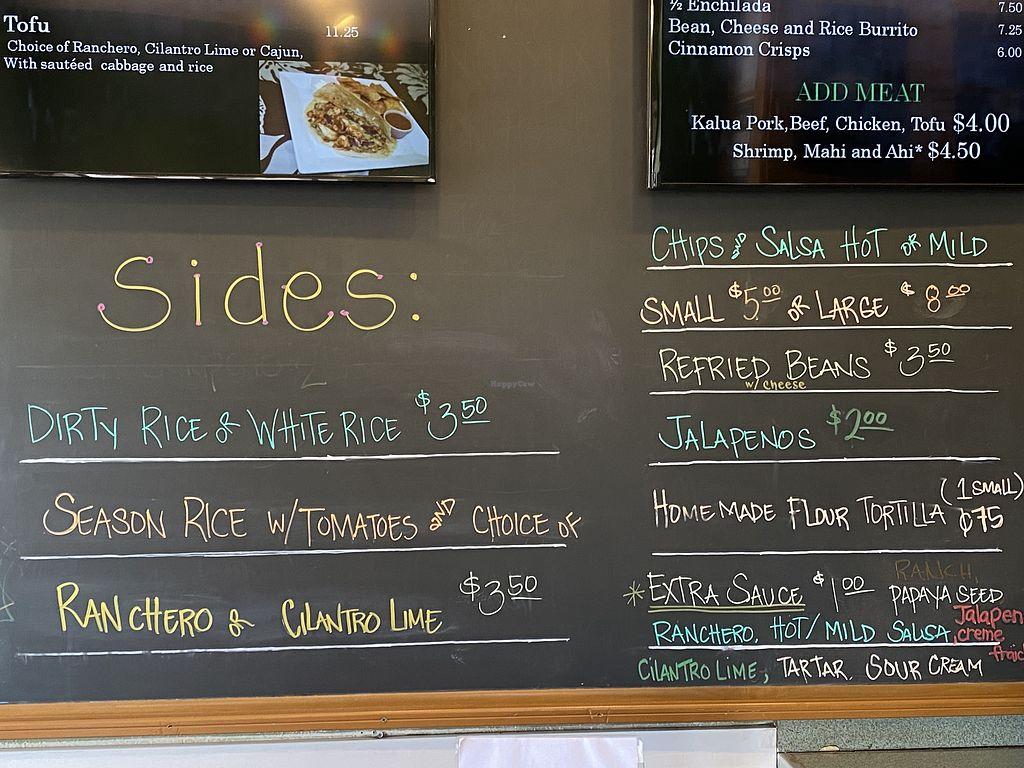 Tofu 11.25
Choice of Ranchero, Cilantro Lime or Cajun,
With sautéed cabbage and rice
½ Enchilada 7.50
Bean, Cheese and Rice Burrito 7.25
Cinnamon Crisps 6.00
ADD MEAT
Kalua Pork,Beef, Chicken, Tofu $4.00
Shrimp, Mahi and Ahi* $4.50
Sides:
DIRTY RICE or WHITE RICE $3.50
SEASON RICE W/TOMATOES AND CHOICE OF
RANCHERO or CILANTRO LIME $3.50
CHIPS AND SALSA HOT OR MILD
SMALL $5.00 OR LARGE $8.00
REFRIED BEANS $3.50
w/ cheese
JALAPENOS $2.00
HOMEMADE FLOUR TORTILLA (1 SMALL)
¢75
*EXTRA SAUCE $1.00 RANCH,
PAPAYA SEED
RANCHERO, HOT/MILD SALSA, Jalapen
creme
fraic
CILANTRO LIME, TARTAR, SOUR CREAM
HappyCow